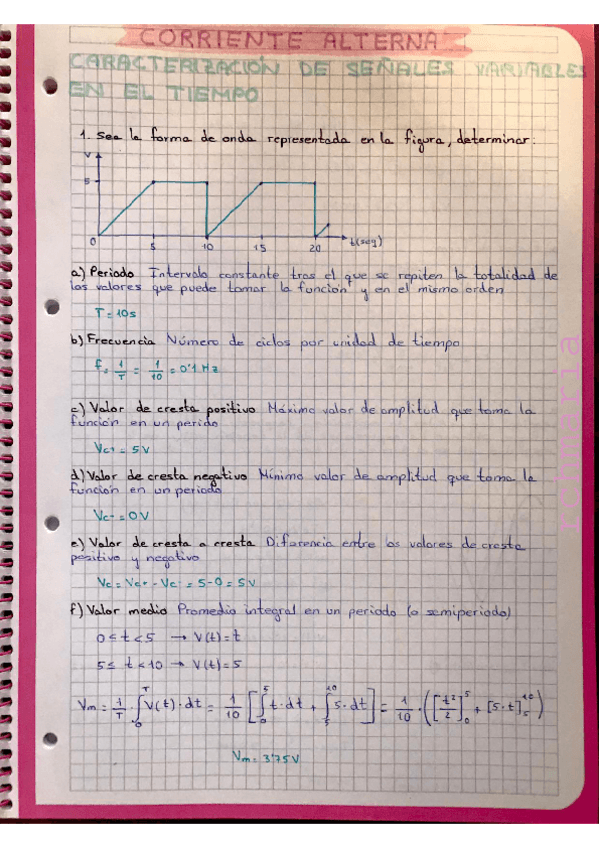 CORRIENTE ALTERNA
CARACTERIZACIÓN DE SEÑALES VARIABLES
EN EL TIEMPO
1. Sea la forma de onda representada en la figura, determinar:
V
5
0 5 10 15 20 t(seg)
a) Periodo Intervalo constante tras el que se repiten la totalidad de
los valores que puede tomar la función y en el mismo orden
T = 10s
b) Frecuencia Número de ciclos por unidad de tiempo
f = 1/T = 1/10 = 0'1 Hz
c) Valor de cresta positivo Máximo valor de amplitud que toma la
función en un perido
Vc+ = 5V
d) Valor de cresta negativo Mínimo valor de amplitud que toma la
función en un periodo
Vc- = 0V
e) Valor de cresta a cresta Diferencia entre los valores de cresta
positivo y negativo
Vc = Vc+ - Vc- = 5-0 = 5V
f) Valor medio Promedio integral en un periodo (o semiperiodo)
0 ≤ t < 5 → V(t) = t
5 ≤ t < 10 → V(t) = 5
Vm = 1/T · ∫₀ᵀ V(t) · dt = 1/10 [∫₀⁵ t · dt + ∫₅¹⁰ 5 · dt] = 1/10 · ([t²/2]₀⁵ + [5·t]₅¹⁰)
Vm = 3'75V